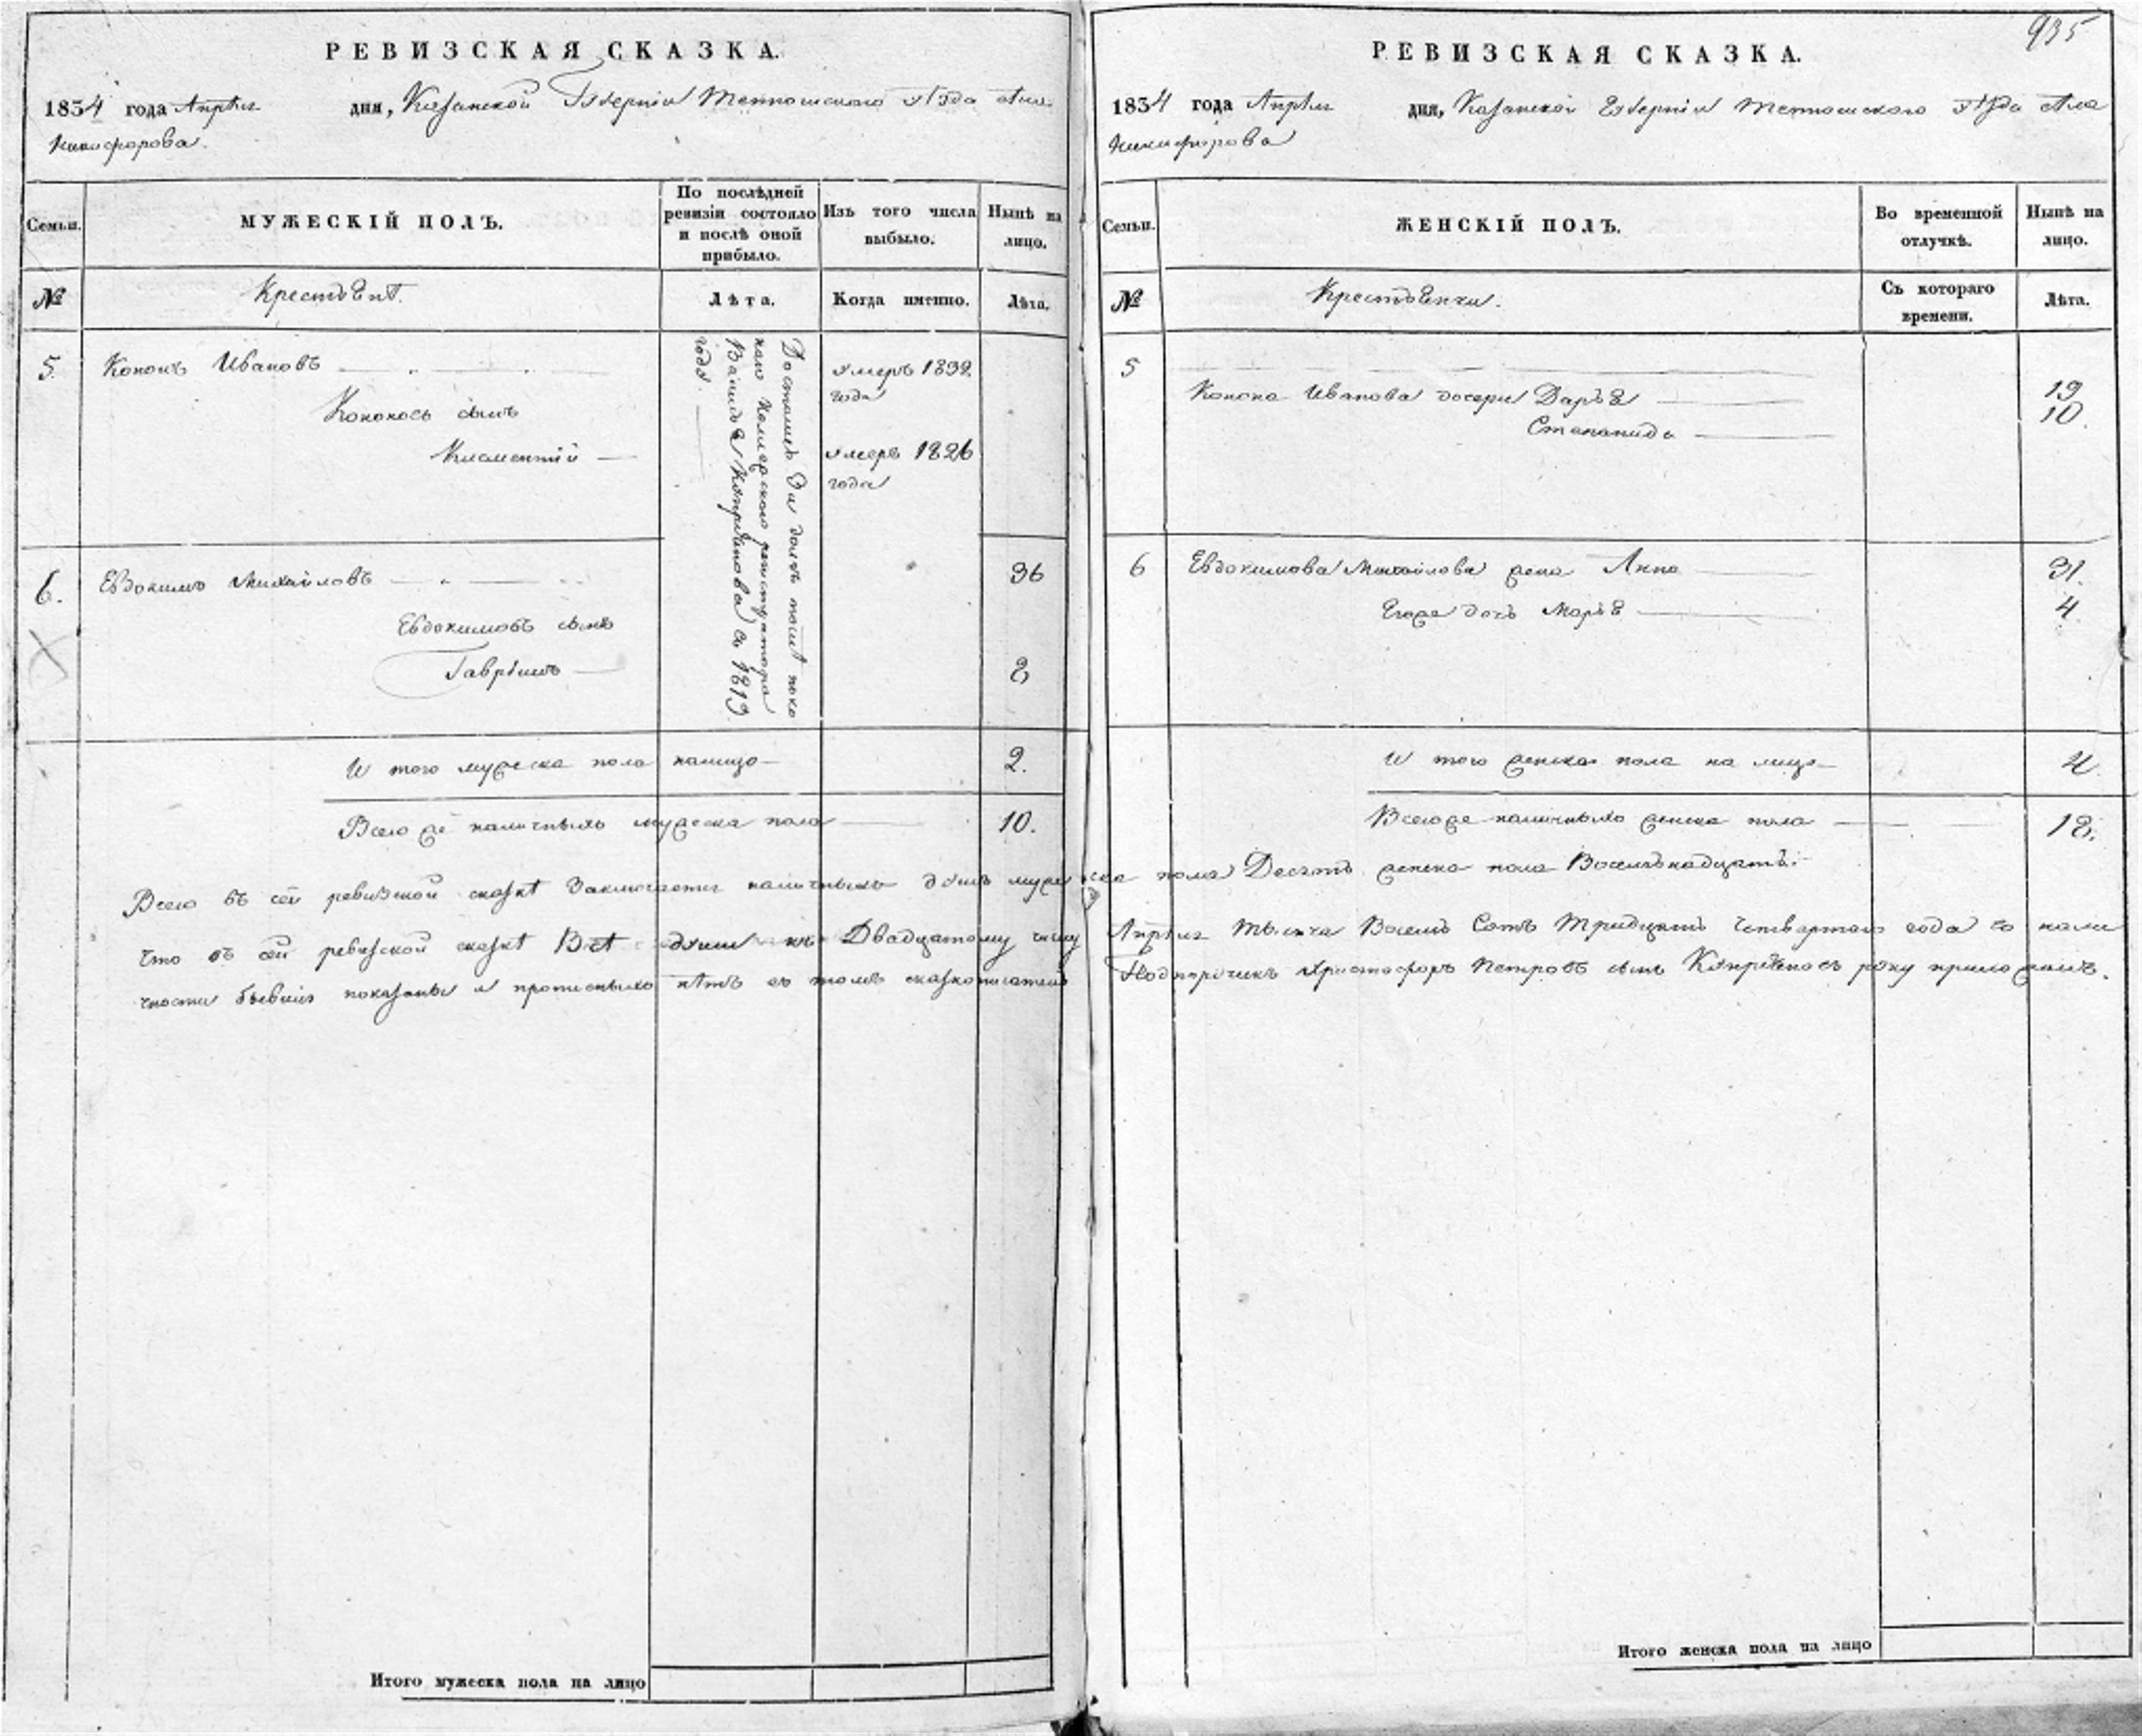 РЕВИЗСКАЯ СКАЗКА.
1834 года Апреля дня, Казанской Губернiи Тетюшского уезда села
Никифорова.
Семьи. МУЖЕСКIЙ ПОЛЪ. По последней ревизiи состояло и после оной прибыло. Изъ того числа выбыло. Ныне на лицо.
№ Крестьяне. Лѣта. Когда именно. Лѣта.
5. Кононъ Ивановъ умеръ 1832
года
Кононовъ сынъ
Климентiй умеръ 1826
года
Достались
по 1819
года.
6. Евдокимъ Михайловъ 36
Евдокимовъ сынъ
Гаврiилъ 8
И того мужеска пола налицо 2.
Всего же наличныхъ мужеска пола 10.
935
РЕВИЗСКАЯ СКАЗКА.
1834 года Апреля дня, Казанской Губернiи Тетюшского уезда села
Никифорова
Семьи. ЖЕНСКIЙ ПОЛЪ. Во временной отлучкѣ. Нынѣ на лицо.
№ Крестьянки. Съ котораго времени. Лѣта.
5
Конона Иванова дочери Дарья 19
Степанида 10.
6 Евдокимова Михайлова жена Анна 31.
Егоже дочь Марья 4.
И того женска пола на лицо 4.
Всегоже наличныхъ женска пола 18.
Всего въ сей ревизской сказкѣ Заключается наличныхъ душъ мужеска пола Десять женска пола Восемьнадцать:
Что въ сей ревизской сказкѣ Всѣ души къ Двадцатому числу Апреля Тысяча Восемь Сотъ Тридцать Четвертаго года въ нали
чности бывшiя показаны и прописныхъ нѣтъ въ томъ Подпоручикъ Христофоръ Петровъ сынъ руку приложилъ.
Итого мужеска пола на лицо
Итого женска пола на лицо